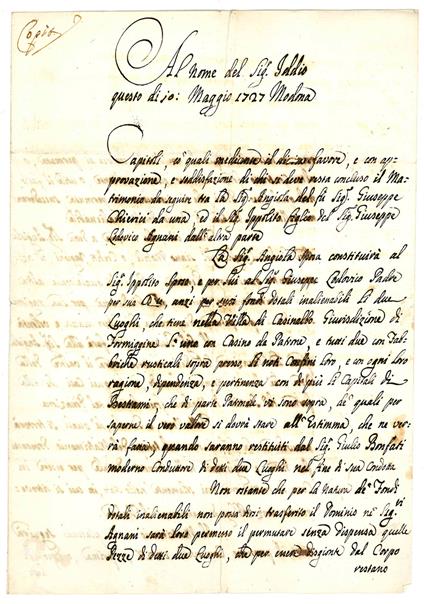 Copia
Al Nome del Sig.r Iddio
questo dì 10: Maggio 1727 Modona
Capitoli, co' quali mediante il divino favore, e con ap=
provazione, e soddisfazione di chi si deve resta concluso il Ma=
trimonio da seguire tra la Sig.ra Angiola del fù Sig.r Giuseppe
Chierici da una, ed il Sig.r Ippolito figlio del Sig.r Giuseppe
Lodovico Agnani dall'altra parte
La Sig.ra Angiola Sposa constituirà al
Sig.r Ippolito Sposo, e per lui al Sig.r Giuseppe Lodovico Padre
per sua anzi per suoi fondi dotali inalienabili li due
Luoghi, che tiene nella Villa di Casinalbo Giurisdizione di
Formiggine L'uno con Casino da Patrone, e tutti due con Fab=
briche rusticali sopra presso li noti Confini loro, e con ogni loro
ragione, dipendenza, e pertinenza con di più li Capitali di
Bestiami, che di parte Patronale vi sono sopra, de' quali per
sapere il vero valore si dovrà stare all'Estimma, che ne ver=
rà fatta, quando saranno restituiti dal Sig.r Giulio Bonfati
moderno Conduttore di detti due Luoghi nel fine di sua Condotta
Non ostante che per la natura de' Fondi
dotali inalienabili non possa dirsi trasferito il Dominio ne' Sig.ri
Agnani sarà loro permesso il permutare senza dispensa quelle
Pezze di detti due Luoghi, che per essere disgionte dal Corpo
restano